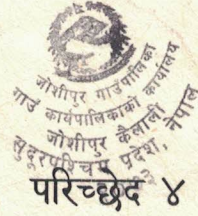 जोशीपुर गाउँपालिका
गाउँ कार्यपालिकाको कार्यालय
जोशीपुर कैलाली
सुदूरपश्चिम प्रदेश, नेपाल
परिच्छेद ४